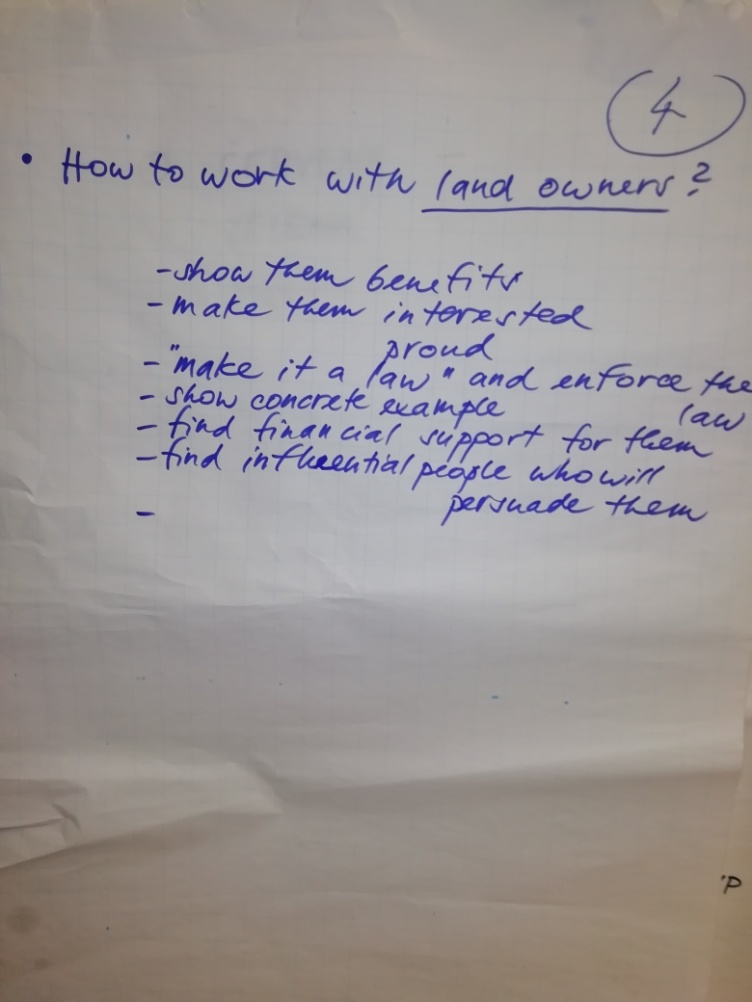 4
• How to work with land owners?
- show them benefits
- make them interested
proud
- "make it a law" and enforce the
law
- show concrete example
- find financial support for them
- find influential people who will
persuade them
-
'P